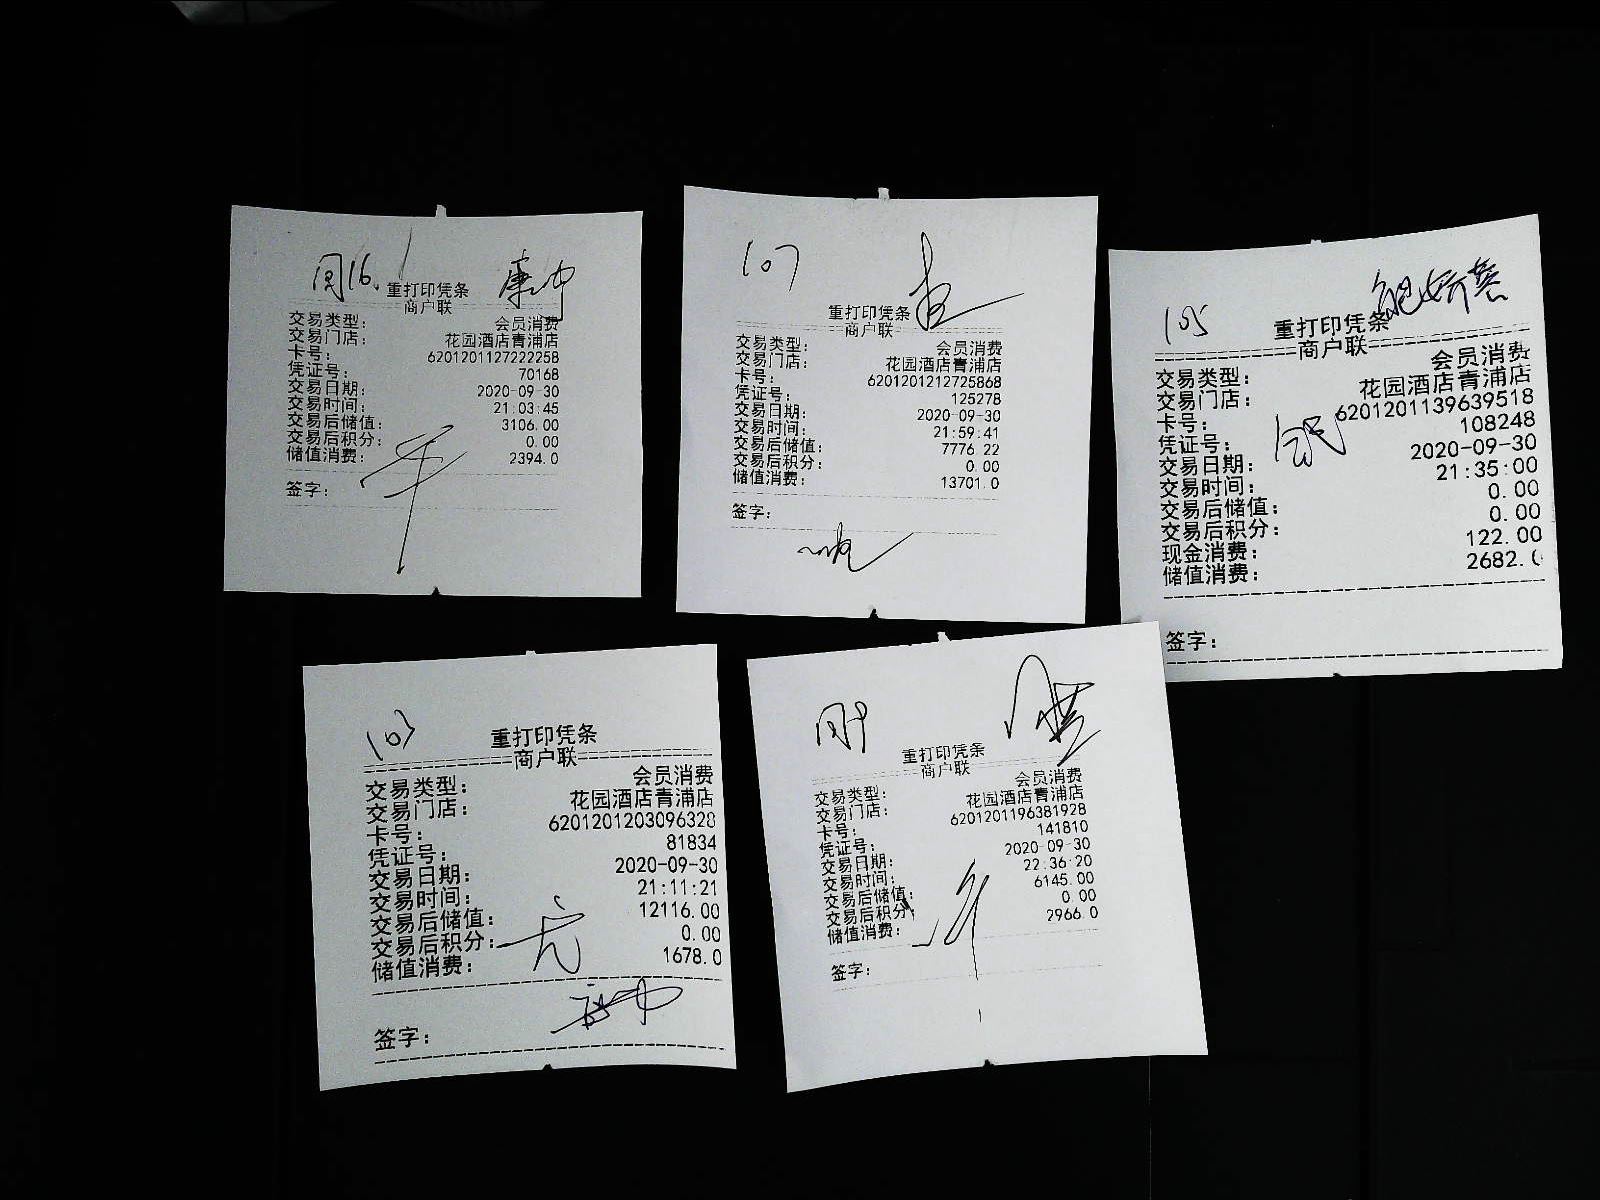 周16.
重打印凭条
商户联
交易类型: 会员消费
交易门店: 花园酒店青浦店
卡号: 6201201127222258
凭证号: 70168
交易日期: 2020-09-30
交易时间: 21:03:45
交易后储值: 3106.00
交易后积分: 0.00
储值消费: 2394.0
签字:
107
重打印凭条
商户联
交易类型: 会员消费
交易门店: 花园酒店青浦店
卡号: 6201201212725868
凭证号: 125278
交易日期: 2020-09-30
交易时间: 21:59:41
交易后储值: 7776.22
交易后积分: 0.00
储值消费: 13701.0
签字:
105
重打印凭条
商户联
交易类型: 会员消费
交易门店: 花园酒店青浦店
卡号: 6201201139639518
凭证号: 108248
交易日期: 2020-09-30
交易时间: 21:35:00
交易后储值: 0.00
交易后积分: 0.00
现金消费: 122.00
储值消费: 2682.0
签字:
103
重打印凭条
商户联
交易类型: 会员消费
交易门店: 花园酒店青浦店
卡号: 6201201203096328
凭证号: 81834
交易日期: 2020-09-30
交易时间: 21:11:21
交易后储值: 12116.00
交易后积分: 0.00
储值消费: 1678.0
签字:
周9
重打印凭条
商户联
交易类型: 会员消费
交易门店: 花园酒店青浦店
卡号: 6201201196381928
凭证号: 141810
交易日期: 2020-09-30
交易时间: 22:36:20
交易后储值: 6145.00
交易后积分: 0.00
储值消费: 2966.0
签字: